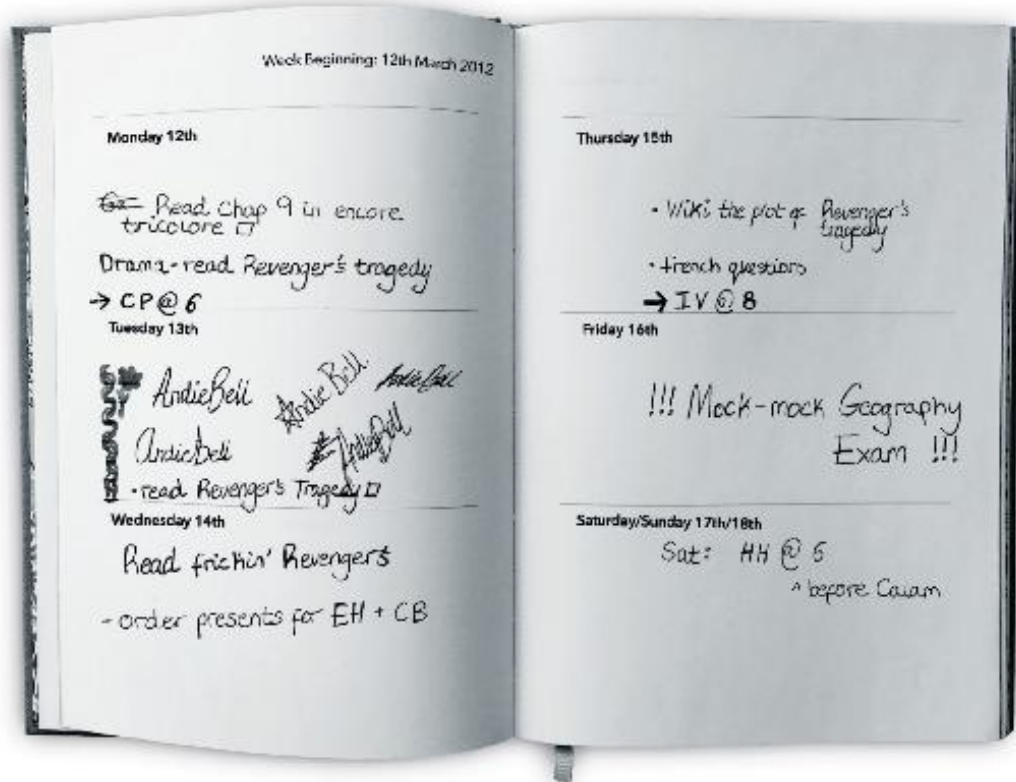 Week Beginning: 12th March 2012
Monday 12th
Read Chap 9 in encore
tricolore
Drama - read Revenger's tragedy
→ CP @ 6
Tuesday 13th
AndieBell
Andie Bell
AndieBell
AndieBell
AndieBell
• read Revenger's Tragedy
Wednesday 14th
Read frickin' Revengers
- order presents for EH + CB
Thursday 15th
• Wiki the plot of Revenger's
tragedy
• french questions
→ IV @ 8
Friday 16th
!!! Mock-mock Geography
Exam !!!
Saturday/Sunday 17th/18th
Sat: HH @ 6
^ before Calam